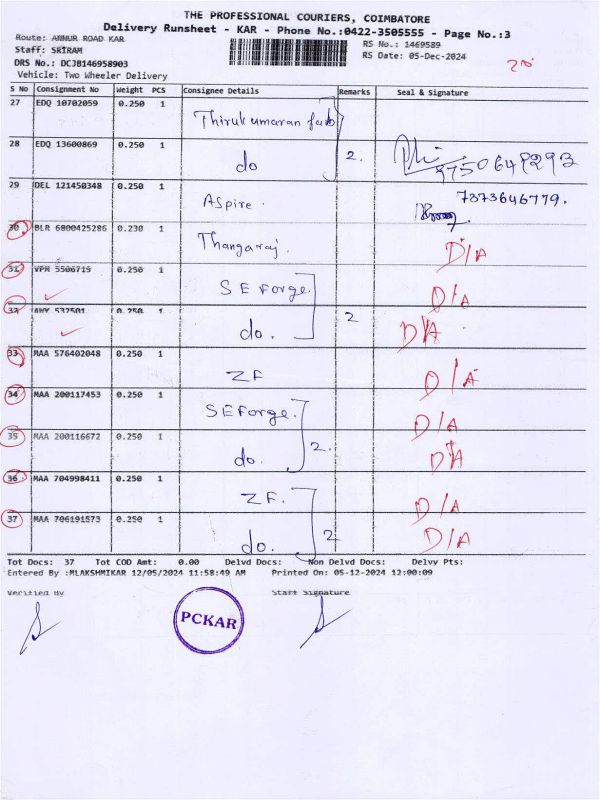 THE PROFESSIONAL COURIERS, COIMBATORE
Delivery Runsheet - KAR - Phone No.:0422-3505555 - Page No.:3
Route: ANNUR ROAD KAR
RS No.: 1469589
Staff: SRIRAM
RS Date: 05-Dec-2024
DRS No.: DCJB146958903
Vehicle: Two Wheeler Delivery
S No Consignment No Weight PCS Consignee Details Remarks Seal & Signature
27 EDQ 10702059 0.250 1 Thirukumaran fab
28 EDQ 13600869 0.250 1 do 2. 9750649293
29 DEL 121450348 0.250 1 Aspire. 7373646779.
30 BLR 6800425286 0.230 1 Thangaraj. D/A
31 VPR 5506719 0.250 1 SE Forge. D/A
32 0.250 1 do. 2 D/A
33 MAA 576402048 0.250 1 ZF D/A
34 MAA 200117453 0.250 1 SEForge. D/A
35 MAA 200116672 0.250 1 do. 2. D/A
36 MAA 704998411 0.250 1 ZF. D/A
37 MAA 706191573 0.250 1 do. 2 D/A
Tot Docs: 37 Tot COD Amt: 0.00 Delvd Docs: Non Delvd Docs: Delvy Pts:
Entered By :MLAKSHMIKAR 12/05/2024 11:58:49 AM Printed On: 05-12-2024 12:00:09
Verified By Staff Signature
PCKAR